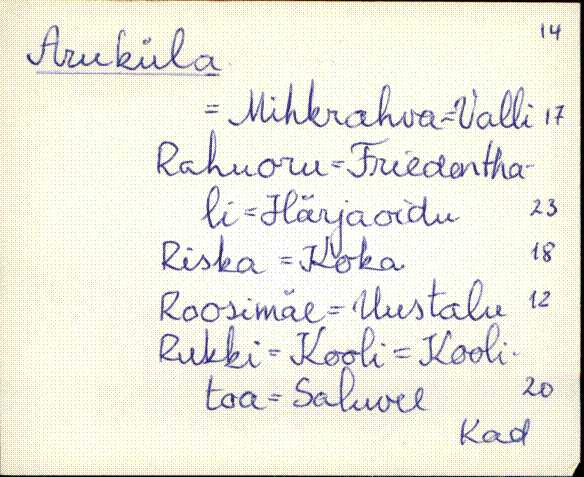 14
Aruküla
= Mihkrahva = Valli 17
Rahuoru = Friedentha-
li = Härjaoidu 23
Riska = Koka 18
Roosimäe = Uustalu 12
Rukki = Kooli = Kooli-
toa = Saluvee 20
Kad